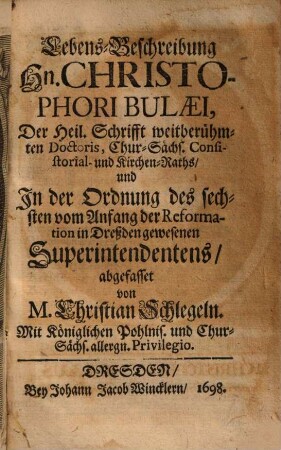 Lebens-Beschreibung
Hn. CHRISTO-
PHORI BULÆI,
Der Heil. Schrifft weitberühm-
ten Doctoris, Chur-Sächs. Consi-
storial- und Kirchen-Raths/
und
In der Ordnung des sech-
sten vom Anfang der Reforma-
tion in Dreßden gewesenen
Superintendentens/
abgefasset
von
M. Christian Schlegeln.
Mit Königlichen Pohlnis. und Chur-
Sächs. allergn. Privilegio.
DRESDEN/
Bey Johann Jacob Wincklern/ 1698.